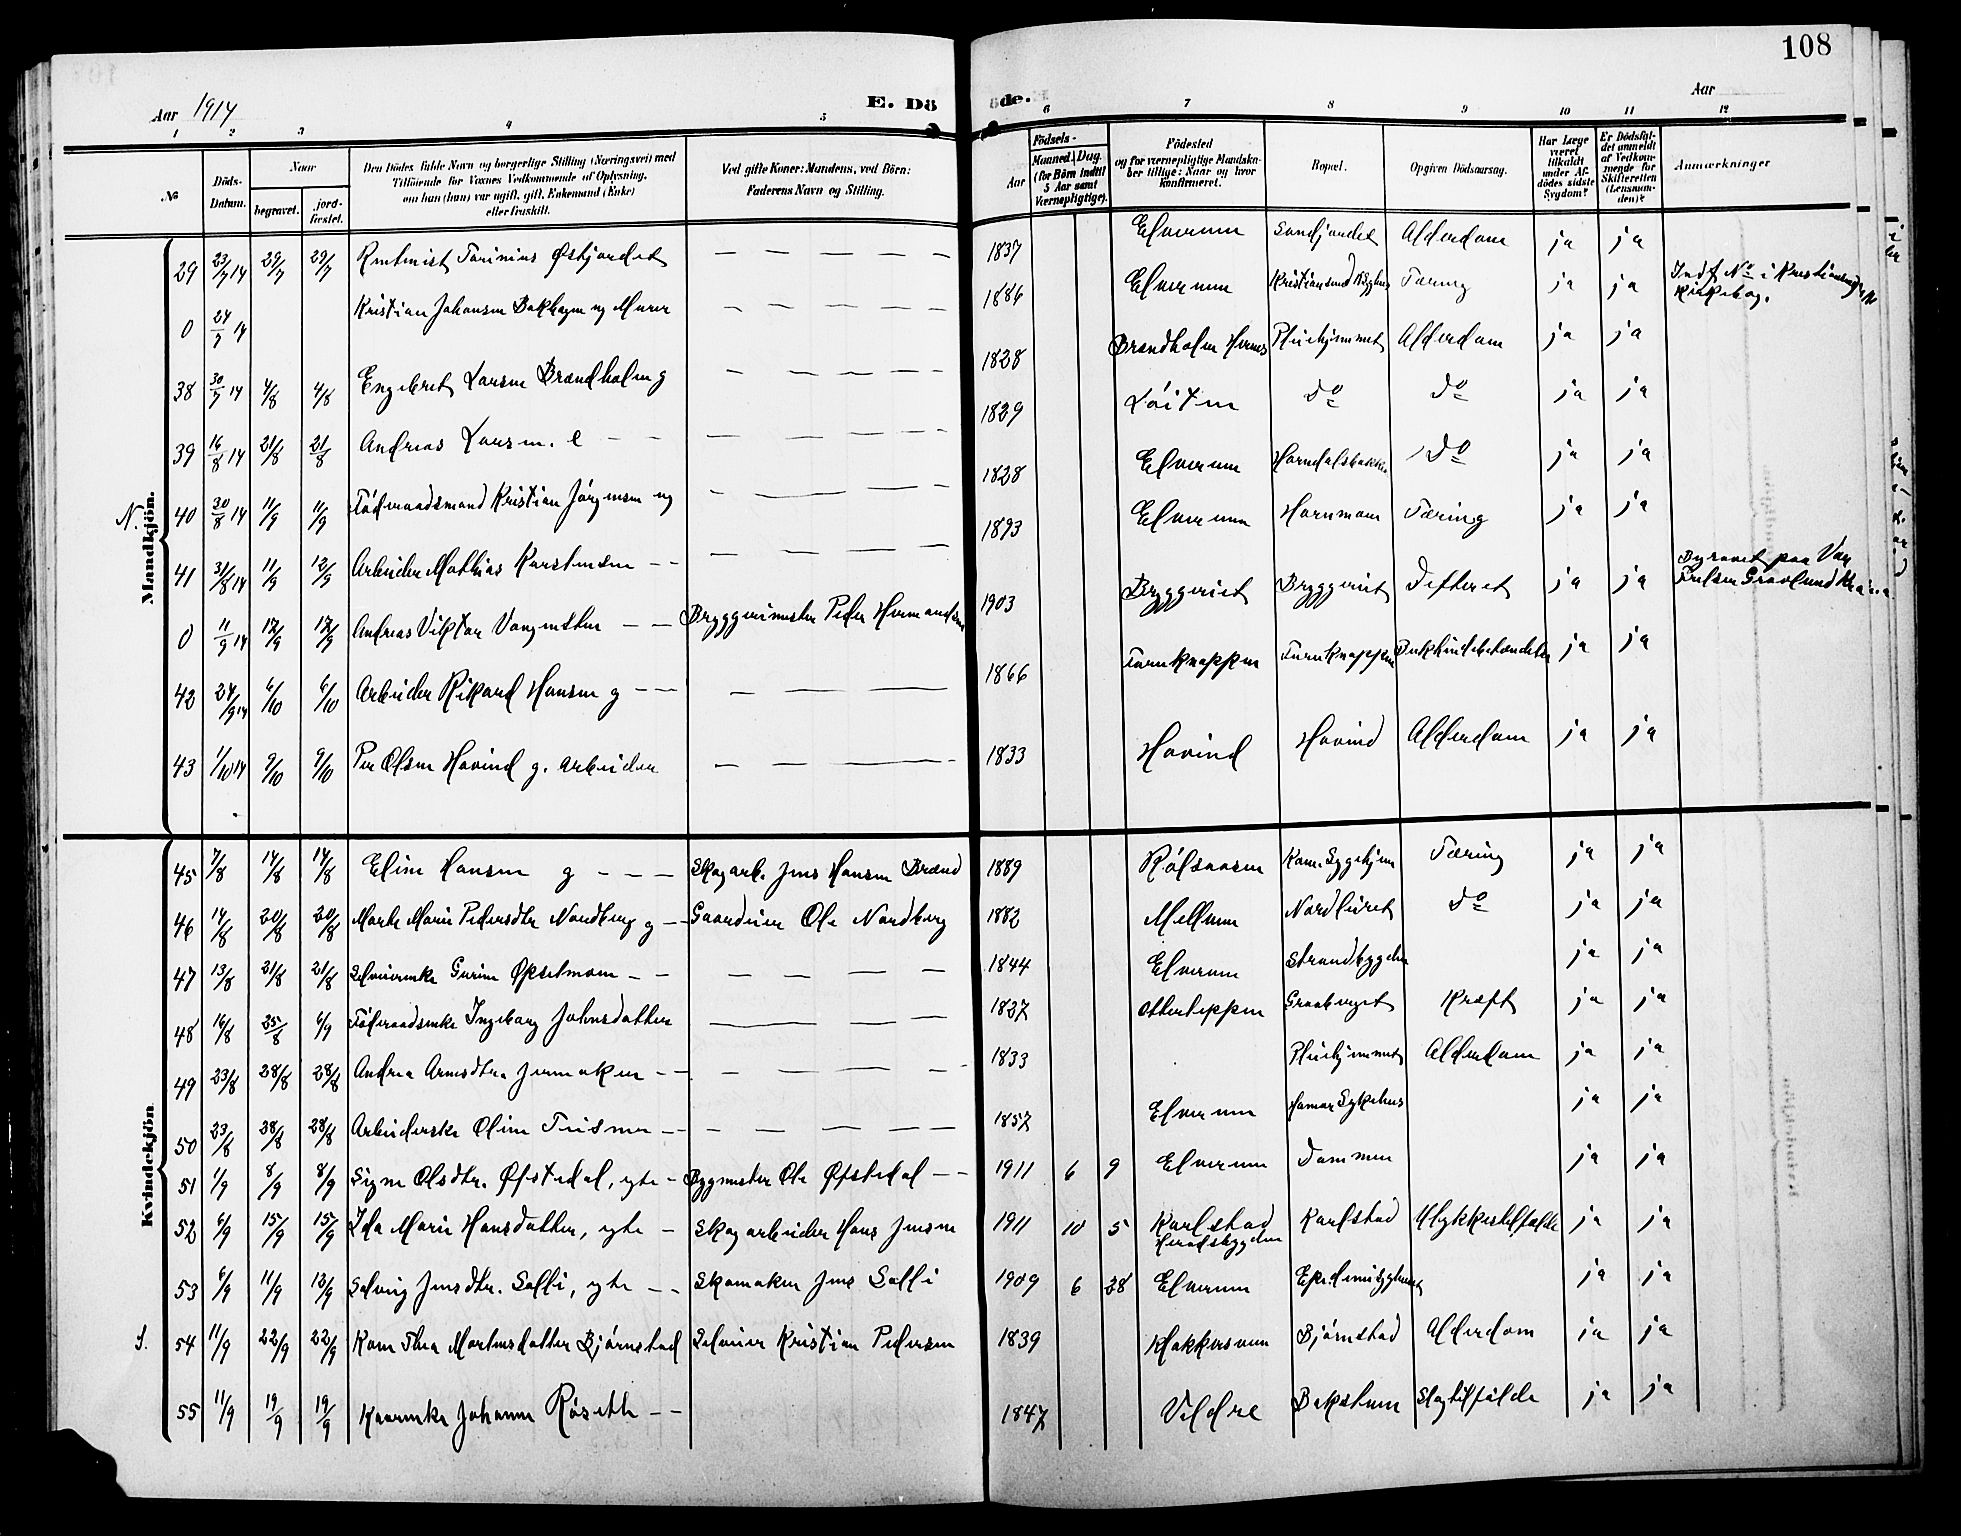 108
Aar 1914 E. Dö
öde. Aar
1 2 3 4 5 6 7 8 9 10 11 12
No
Döds-Datum.
Naar begravet. jordfæstet.
Den Dödes fulde Navn og borgerlige Stilling (Næringsvei) med Tilföiende for Voxnes Vedkommende af Oplysning, om han (hun) var ugift, gift, Enkemand (Enke) eller fraskilt.
Ved gifte Koner: Mandens, ved Börn: Faderens Navn og Stilling.
Födsels- Aar Maaned. Dag. (for Börn indtil 5 Aar samt Værnepligtige).
Födested og for værnepligtige Mandskaber tillige: Naar og hvor konfirmeret.
Bopæl.
Opgiven Dödsaarsag.
Har Læge været tilkaldt under Afdödes sidste Sygdom?
Er Dödsfaldet anmeldt af Vedkommende for Skifteretten (Lensmanden)?
Anmærkninger
Mandkjön.
29 23/7 14 29/7 29/7 Østjordet — — — — 1837 Elverum Sandjordet Alderdom ja ja
0 24/7 14 Kristian Johansen Bakhagen ug Murer — — — — 1886 Elverum Kristiansund Tæring ja ja Indf No i Kristiansunds Kirkebog.
38 30/7 14 4/8 4/8 Engebret Larsen Brændholen g — — — — 1828 Brændholen Hernes Pleiehjemmet Alderdom ja ja
39 16/8 14 21/8 21/8 Andreas Larsen. e — — — — — — 1829 Løiten Do Do ja ja
N. 40 30/8 14 11/9 11/9 Føderaadsmand Kristian Jørgensen ug — — — — 1828 Elverum Do ja ja
41 31/8 14 11/9 12/9 Arbeider Mathias Karstensen — — — — — — 1893 Elverum Hornmoen Tæring ja ja
0 11/9 14 17/9 17/9 Andreas Viktor Vangensten — — Bryggerimester Peder Hermandsen 1903 Bryggeriet Bryggeriet Difterit ja ja Begravet paa Vor Frelsers Gravlund
42 24/9 14 6/10 6/10 Arbeider Rikard Hansen g — — — — — — 1866 Furuknappen Furuknappen ja ja
43 1/10 14 9/10 9/10 Per Olsen Hovind g. arbeider — — — — 1833 Hovind Hovind Alderdom ja ja
Kvindekjön
45 7/8 14/8 14/8 Eline Hansen g — — — Skogarb. Jens Hansen Brænd 1889 Kom. Sygehjem Tæring ja ja
46 14/8 20/8 20/8 Marte Marie Pedersdtr Nordberg g — Gaardeier Ole Nordberg 1882 Mellum Do ja ja
47 13/8 21/8 21/8 Selveierenke Gurine Øksetmoen — — — — — — 1844 Elverum Strandbygden ja ja
48 16/8 25/8 6/9 Føderaadsenke Ingeborg Johnsdatter — — — — 1827 Graaberget Kræft ja ja
49 23/8 28/8 28/8 Andrea Arnesdtr. — — — — — — 1833 Pleiehjemmet Alderdom ja ja
50 23/8 28/8 28/8 Arbeiderske Oline — — — — — — 1857 Elverum Hamar Sykehus ja ja
51 1/9 8/9 8/9 Signe Olsdtr. Øfstedal, egte — Bygmester Ole Øfstedal — — 1911 6 9 Elverum Dammen ja ja
52 6/9 15/9 15/9 Ida Marie Hansdatter, egte — Skogarbeider Hans Jensen 1911 10 5 Karlstad Heradsbygden Karlstad Ulykkestilfælde ja ja
53 6/9 11/9 13/9 Solveig Jensdtr. Solli, egte — — Skomaker Jens Solli 1909 6 28 Elverum ja ja
S. 54 11/9 22/9 22/9 Kone Thea Mortensdatter Bjørnstad Selveier Kristian Pedersen 1839 Bjørnstad Alderdom ja ja
55 11/9 19/9 19/9 Johanne Røseth — — 1847 Veldre Slagtilfælde ja ja